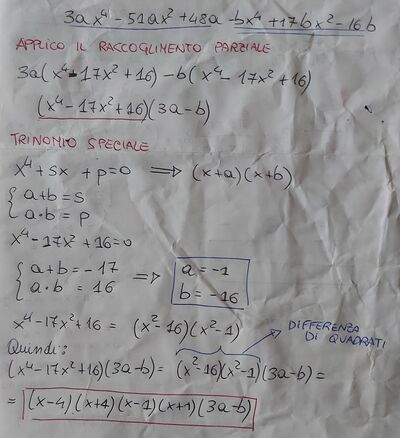 3ax⁴ - 51ax² + 48a - bx⁴ + 17bx² - 16b
APPLICO IL RACCOGLIMENTO PARZIALE
3a(x⁴ - 17x² + 16) - b(x⁴ - 17x² + 16)
(x⁴ - 17x² + 16)(3a - b)
TRINOMIO SPECIALE
x⁴ + sx + p = 0 ⟹ (x+a)(x+b)
{ a+b = s
a·b = p
x⁴ - 17x² + 16 = 0
{ a+b = -17 ⟹ a = -1
a·b = 16 b = -16
x⁴ - 17x² + 16 = (x² - 16)(x² - 1)
DIFFERENZA
DI QUADRATI
Quindi:
(x⁴ - 17x² + 16)(3a - b) = (x² - 16)(x² - 1)(3a - b) =
= (x - 4)(x + 4)(x - 1)(x + 1)(3a - b)